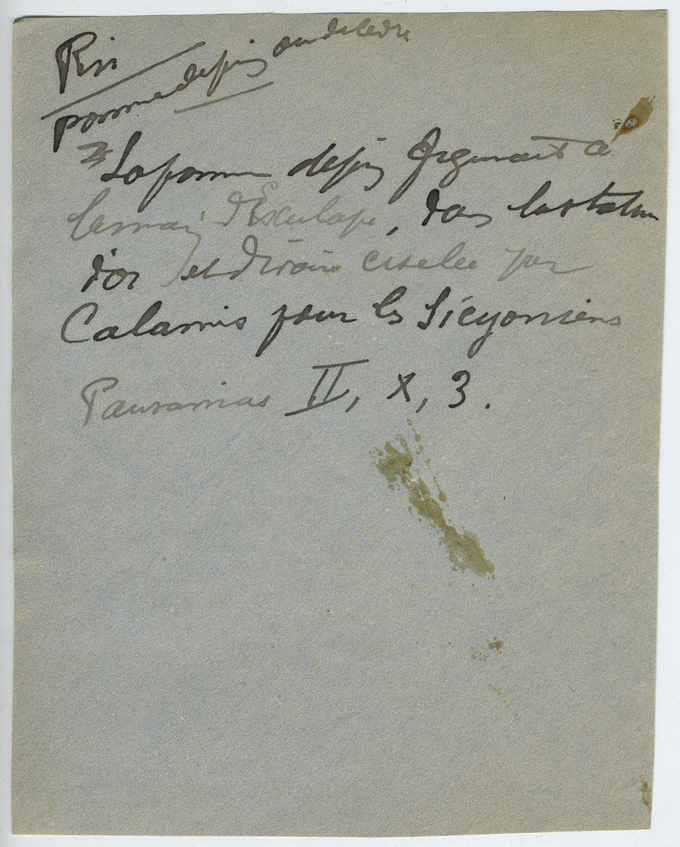 Pin
pomme de pin ou de cèdre
La pomme de pin figurait à
la main d'Esculape, dans la statue
d'or et d'ivoire ciselée par
Calamis pour les Sicyoniens
Pausanias II, X, 3.